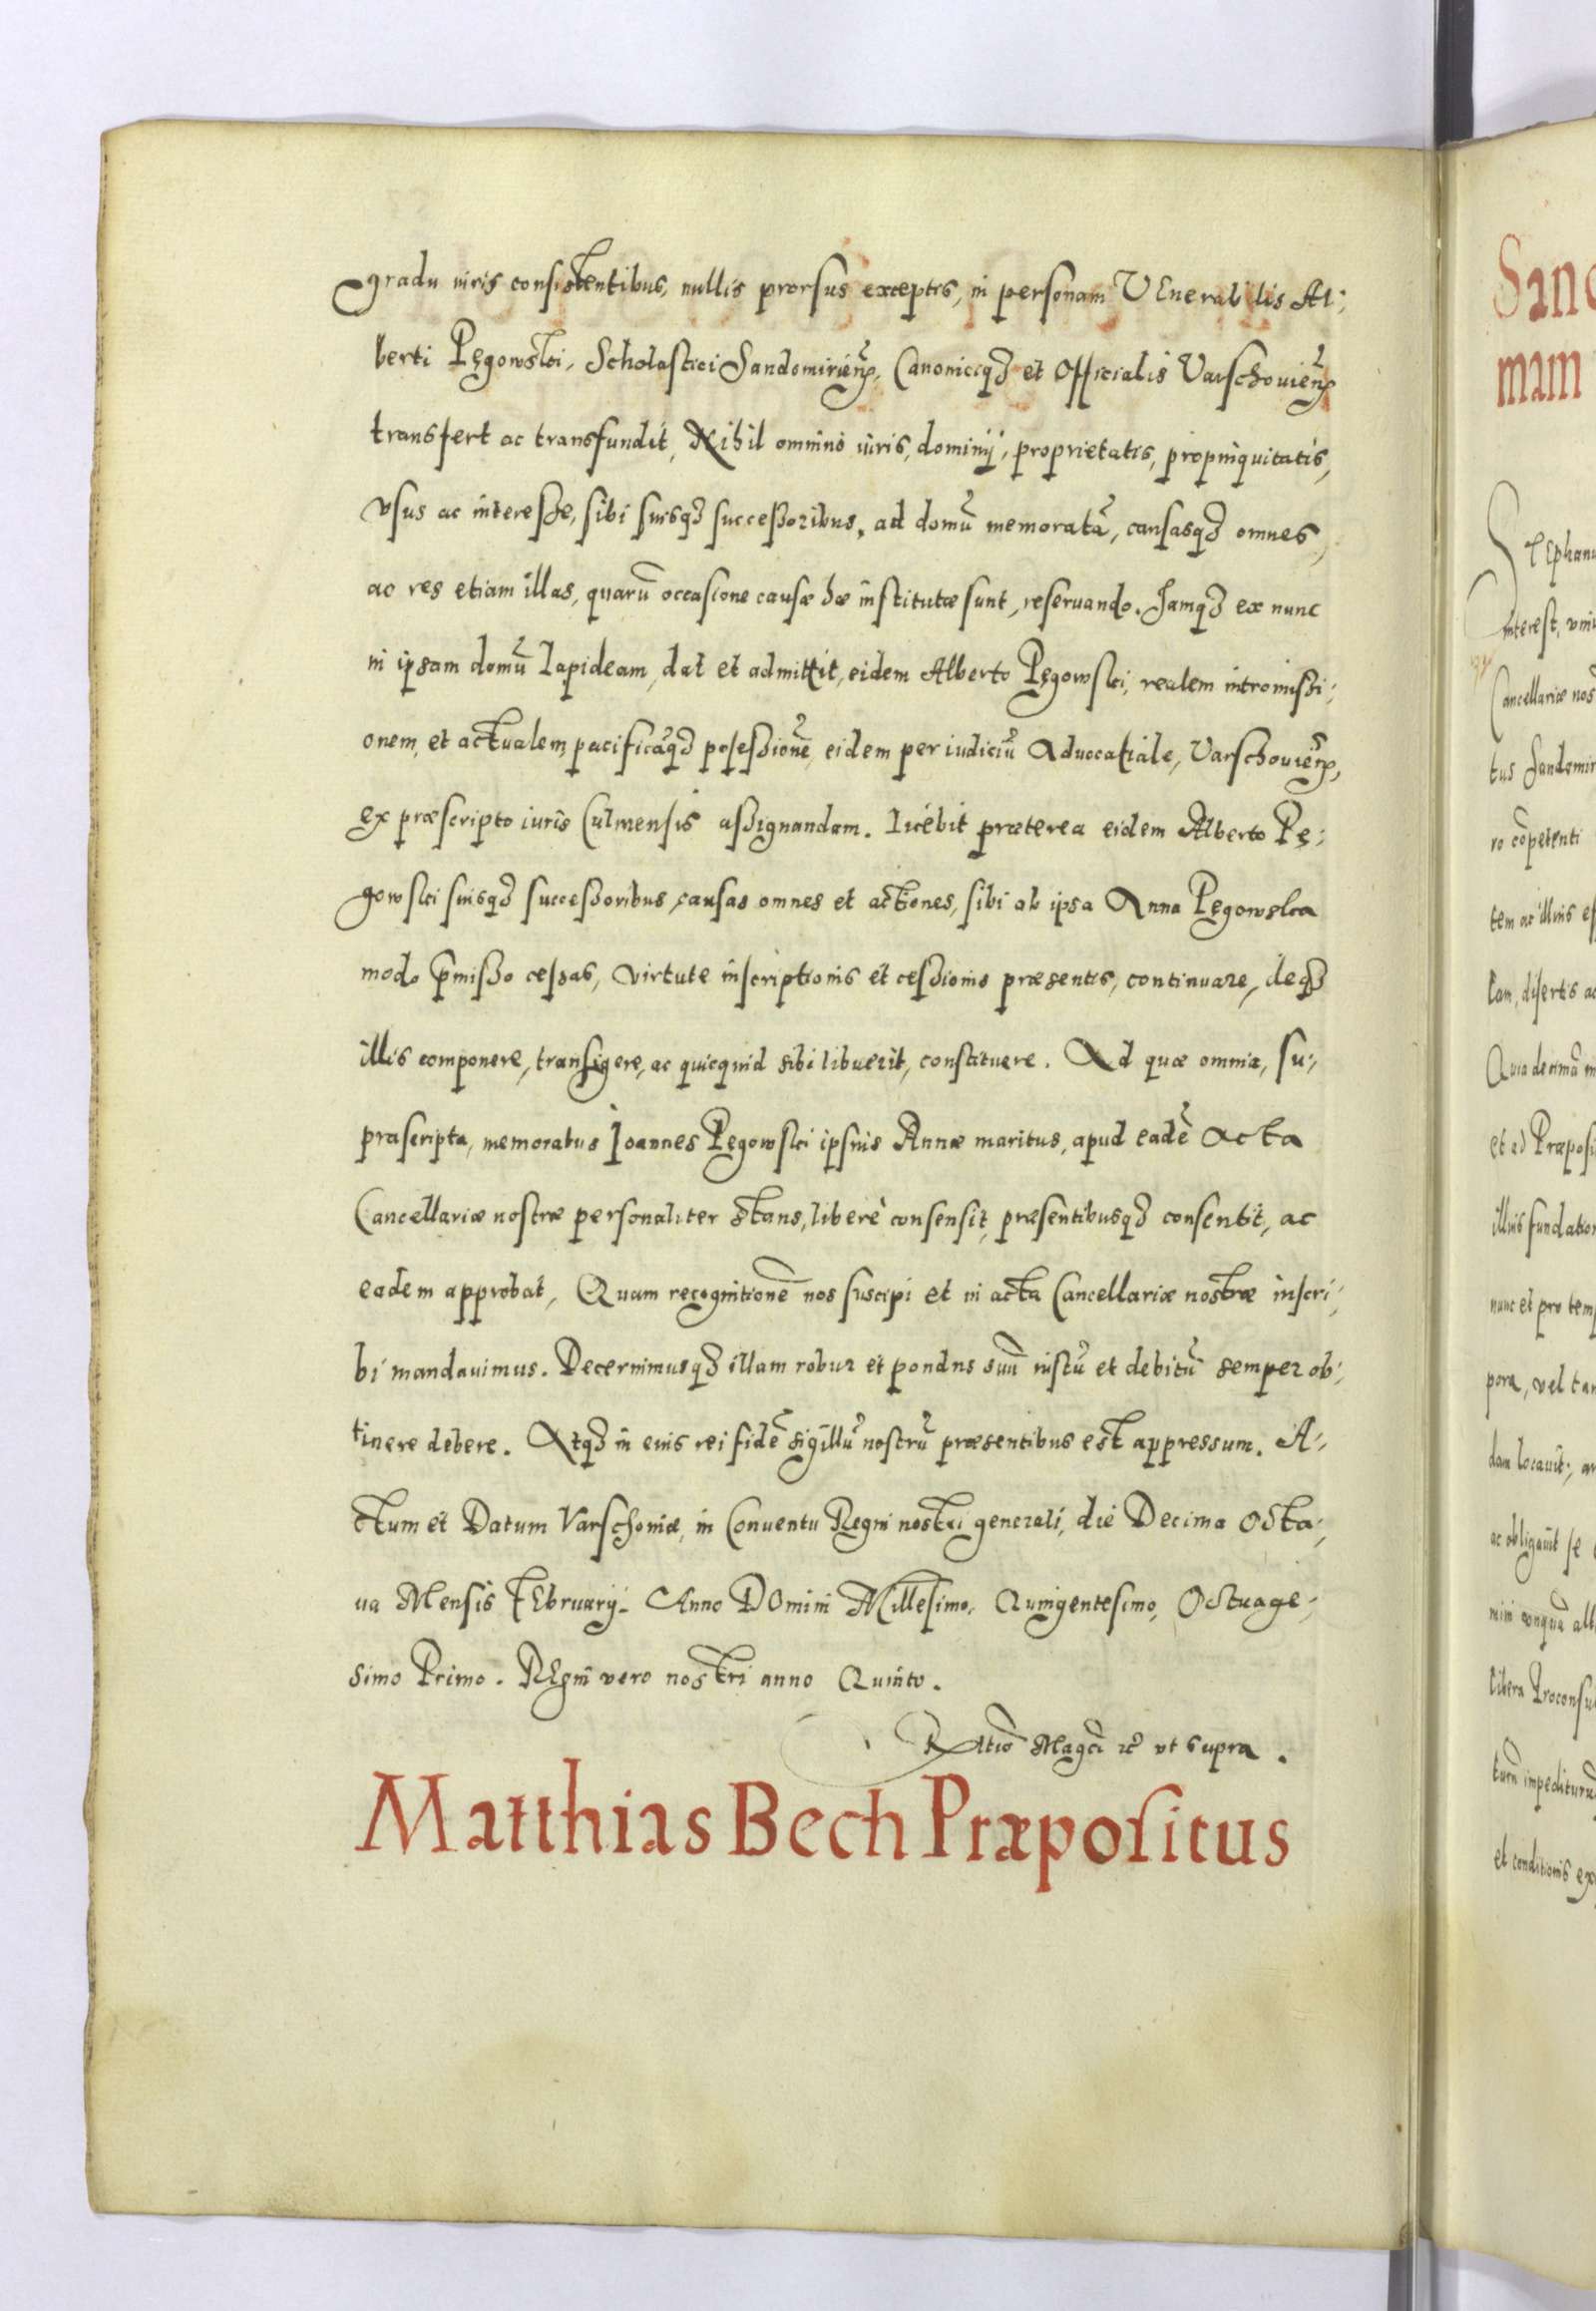 gradu iuris consistentibus, nullis prorsus exceptis, in personam VEnerabilis Al:
berti Pęgowski, Scholastici Sandomirieñ, Canoniciq et Officialis Varschouieñ
transfert ac transfundit, Nihil omnino iuris, dominij, proprietatis, propinquitatis,
vsus ac interesse, sibi suisq successoribus, ad domũ memoratã, causasq omnes,
ac res etiam illas, quarũ occasione causæ hæ institutæ sunt, reseruando. Iamq ex nunc
in ipsam domũ lapideam, dat et admittit, eidem Alberto Pęgowski, realem intromissi:
onem, et actualem, pacificãq possessionẽ, eidem per iudiciũ Aduocatiale, Varschouieñ,
ex præscripto iuris Culmensis assignandam. Licebit præterea eidem Alberto Pę:
gowski suisq successoribus, causas omnes et actiones, sibi ab ipsa Anna Pęgowska
modo p̃misso cessas, virtute inscriptionis et cessionis præsentis, continuare, deq
illis componere, transigere, ac quicquid sibi libuerit, constituere. Ad quæ omnia, su:
prascripta, memoratus Ioannes Pęgowski ipsius Annæ maritus, apud eadẽ acta
Cancellariæ nostræ personaliter stans, liberè consensit, præsentibusq consentit, ac
eadem approbat, Quam recognitionẽ nos suscipi et in acta Cancellariæ nostræ inscri:
bi mandauimus. Decernimusq illam robur et pondus suũ iustũ et debitũ semper ob:
tinere debere. Atq in euis rei fidẽ sigillũ nostrũ præsentibus est appressum. A:
ctum et Datum Varschouiæ, in Conuentu Regni nostri generali, die Decima Octa:
ua Mensis FEbruarij. Anno DOmini Millesimo, Quingentesimo, Octuage:
simo Primo. REgni vero nostri anno Quinto.
RElatiõ Magcĩ zc̃ vt supra.
Matthias Bech Præpositus
Sanc
mam
STEphanu
interest, vni
Cancellariæ nos
tus Sandomir
ro cõpetenti
tem ac illius
lam, disertis ac
Quia decimã
et ad Præposi
illius fundation
nunc et pro tem
pora, vel tan
dam locauit,
ac obligauit se
libera Proconsu
et conditionis